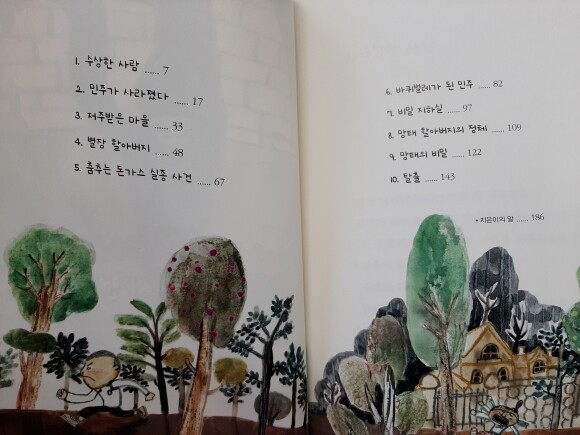 1. 수상한 사람 ...... 7
2. 민주가 사라졌다 ...... 17
3. 저주받은 마을 ...... 33
4. 별장 할아버지 ...... 48
5. 춤추는 돈가스 실종 사건 ...... 67
6. 바퀴벌레가 된 민주 ...... 82
7. 비밀 지하실 ...... 97
8. 망태 할아버지의 정체 ...... 109
9. 망태의 비밀 ...... 122
10. 탈출 ...... 143
• 지은이의 말 ...... 186